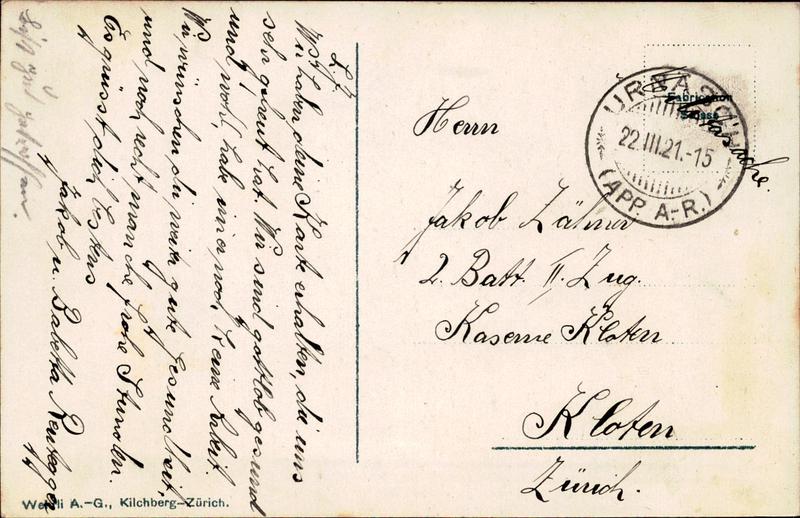 L. J.
Wir haben deine Karte erhalten, die uns
sehr gefreut hat. Wir sind gottlob gesund
und wohl, habe immer noch keine Arbeit.
Wir wünschen dir weiter gute Gesundheit,
und noch recht manche frohe Stunden.
Es grüsst dich bestens
Jakob u. Babetta
URNÄSCH
22.III.21.-15
(APP. A.-R.)
Herrn
Jakob Zähner
2. Batt. II. Zug.
Kaserne Kloten
Kloten
Zürich.
Wehrli A.-G., Kilchberg-Zürich.